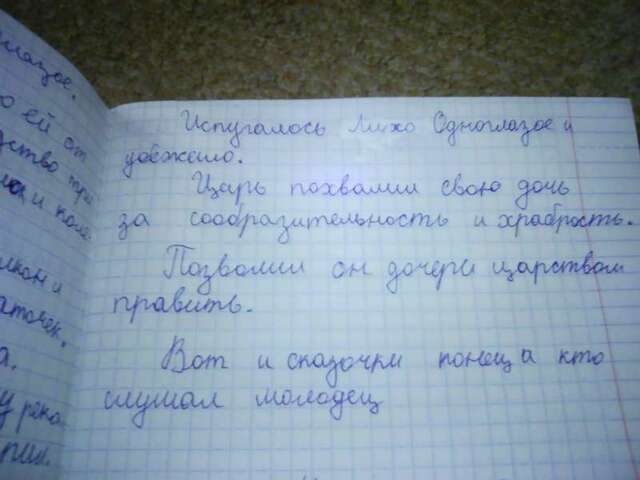 лазое.
о ей от
дство
и
Испугалось Лихо Одноглазое и
убежало.
Царь похвалил свою дочь
за сообразительность и храбрость.
Позволил он дочери царством
править.
Вот и сказочки конец а кто
слушал молодец